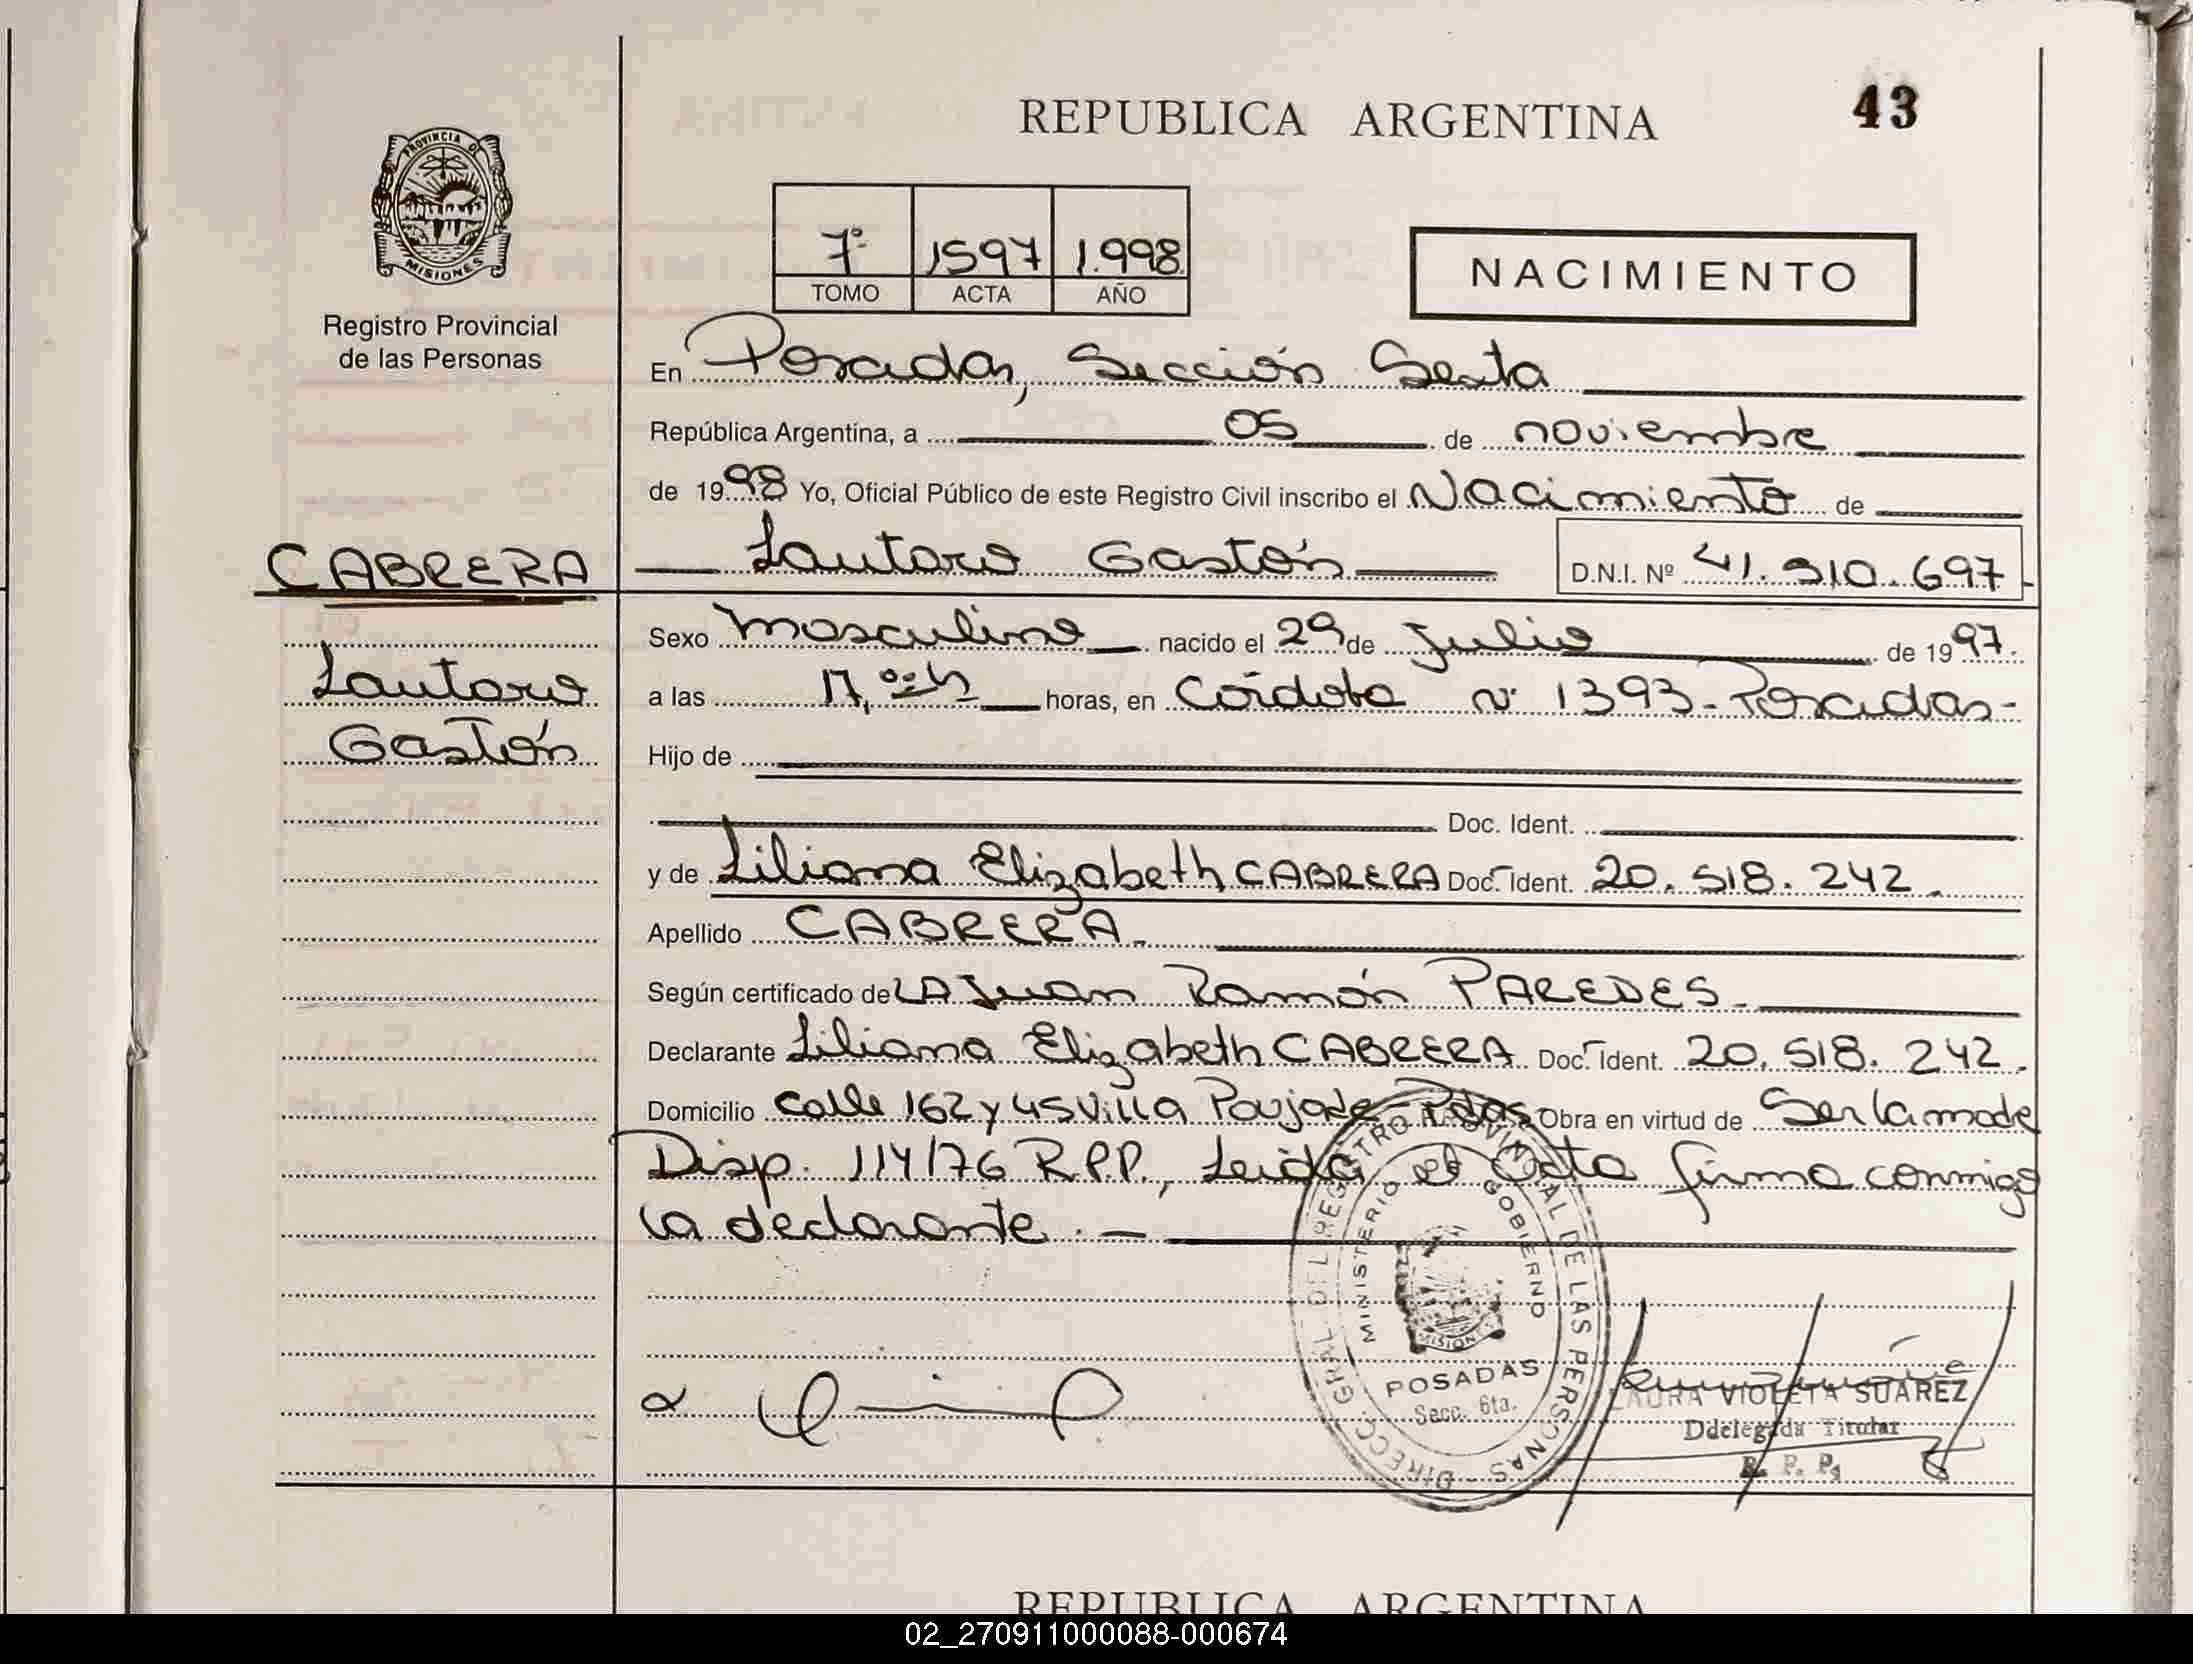 REPUBLICA ARGENTINA
43
PROVINCIA DE
MISIONES
Registro Provincial
de las Personas
7º 1597 1.998
TOMO ACTA AÑO
NACIMIENTO
En Posadas, Sección Sexta
República Argentina, a 05 de noviembre
de 1998 Yo, Oficial Público de este Registro Civil inscribo el Nacimiento de
CABRERA
Lautaro Gastón
Lautaro Gastón D.N.I. Nº 41.910.697
Sexo masculino nacido el 29 de Julio de 1997.
a las 17,00h horas, en Córdoba nº 1393 - Posadas -
Hijo de
Doc. Ident.
y de Liliana Elizabeth CABRERA Doc. Ident. 20.518.242.
Apellido CABRERA
Según certificado de LA Juan Ramón PAREDES
Declarante Liliana Elizabeth CABRERA Doc. Ident. 20.518.242.
Domicilio Calle 162 y 45 Villa Poujade - Pdas Obra en virtud de Ser la madre
Disp. 114/76 R.P.P., Leida el Acta firma conmigo
la declarante. -
DIRECC. GRAL. DEL REGISTRO PROVINCIAL DE LAS PERSONAS
MINISTERIO GOBIERNO
MISIONES
POSADAS
Secc. 6ta.
LAURA VIOLETA SUAREZ
Ddelegada Titular
R. P. P.
REPUBLICA ARGENTINA
02_270911000088-000674